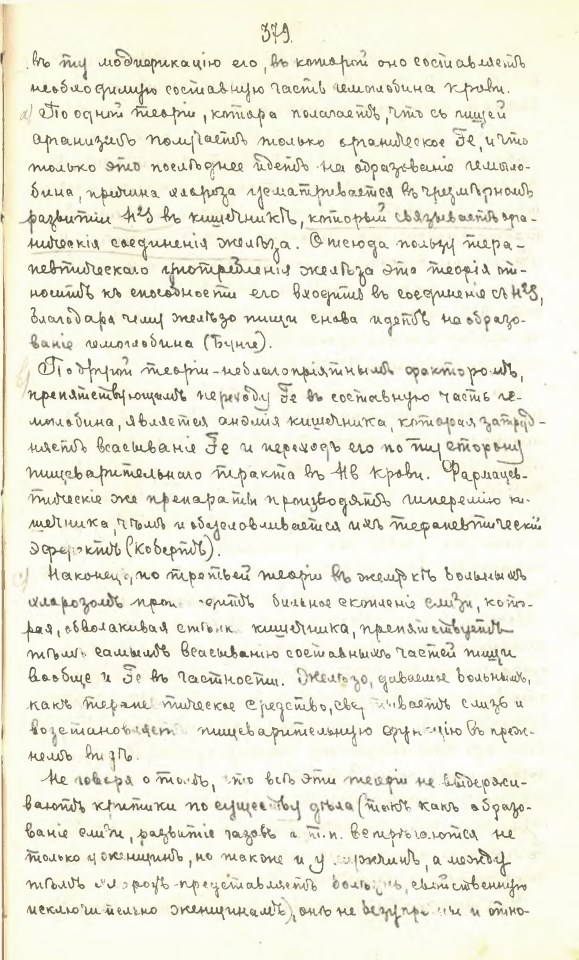 379.
въ ту модификацію его, въ которой оно составляетъ
необходимую составную часть гемоглобина крови.
а) По одной теоріи, котора полагаетъ, что съ пищей
организмъ получаетъ только органическое Fe, и что
только это послѣднее идетъ на образованіе гемогло-
бина, причина хлороза усматривается въ чрезмѣрномъ
развитіи H²S въ кишечникѣ, который связываетъ орга-
ническія соединенія желѣза. Отсюда пользу тера-
певтическаго употребленія желѣза эта теорія от-
носитъ къ способности его входить въ соединеніе съ H²S,
благодаря чему желѣзо пищи снова идетъ на образо-
ваніе гемоглобина (Бунге).
По другой теоріи - неблагопріятнымъ факторомъ,
препятствующимъ переходу Fe въ составную часть ге-
моглобина, является анэмія кишечника, которая затруд-
няетъ всасываніе Fe и переходъ его по ту сторону
пищеварительнаго тракта въ Hb крови. Фармацев-
тическіе же препараты производятъ гиперемію ки-
шечника, чѣмъ и обусловливается ихъ терапевтическій
эффектъ (Кобертъ).
Наконецъ, по третьей теоріи въ желудкѣ больныхъ
хлорозомъ происходитъ сильное скопленіе слизи, кото-
рая, обволакивая стѣнки кишечника, препятствуетъ
тѣмъ самымъ всасыванію составныхъ частей пищи
вообще и Fe въ частности. Желѣзо, даваемое больнымъ,
какъ терапевтическое средство, свертываетъ слизь и
возстановляетъ пищеварительную функцію въ преж-
немъ видѣ.
Не говоря о томъ, что всѣ эти теоріи не выдержи-
ваютъ критики по существу дѣла (такъ какъ образо-
ваніе слизи, развитіе газовъ и т.п. встрѣчаются не
только у женщинъ, но также и у мужчинъ, а между
тѣмъ хлорозъ представляетъ болѣзнь, свойственную
исключительно женщинамъ), онѣ не безупречны и отно-